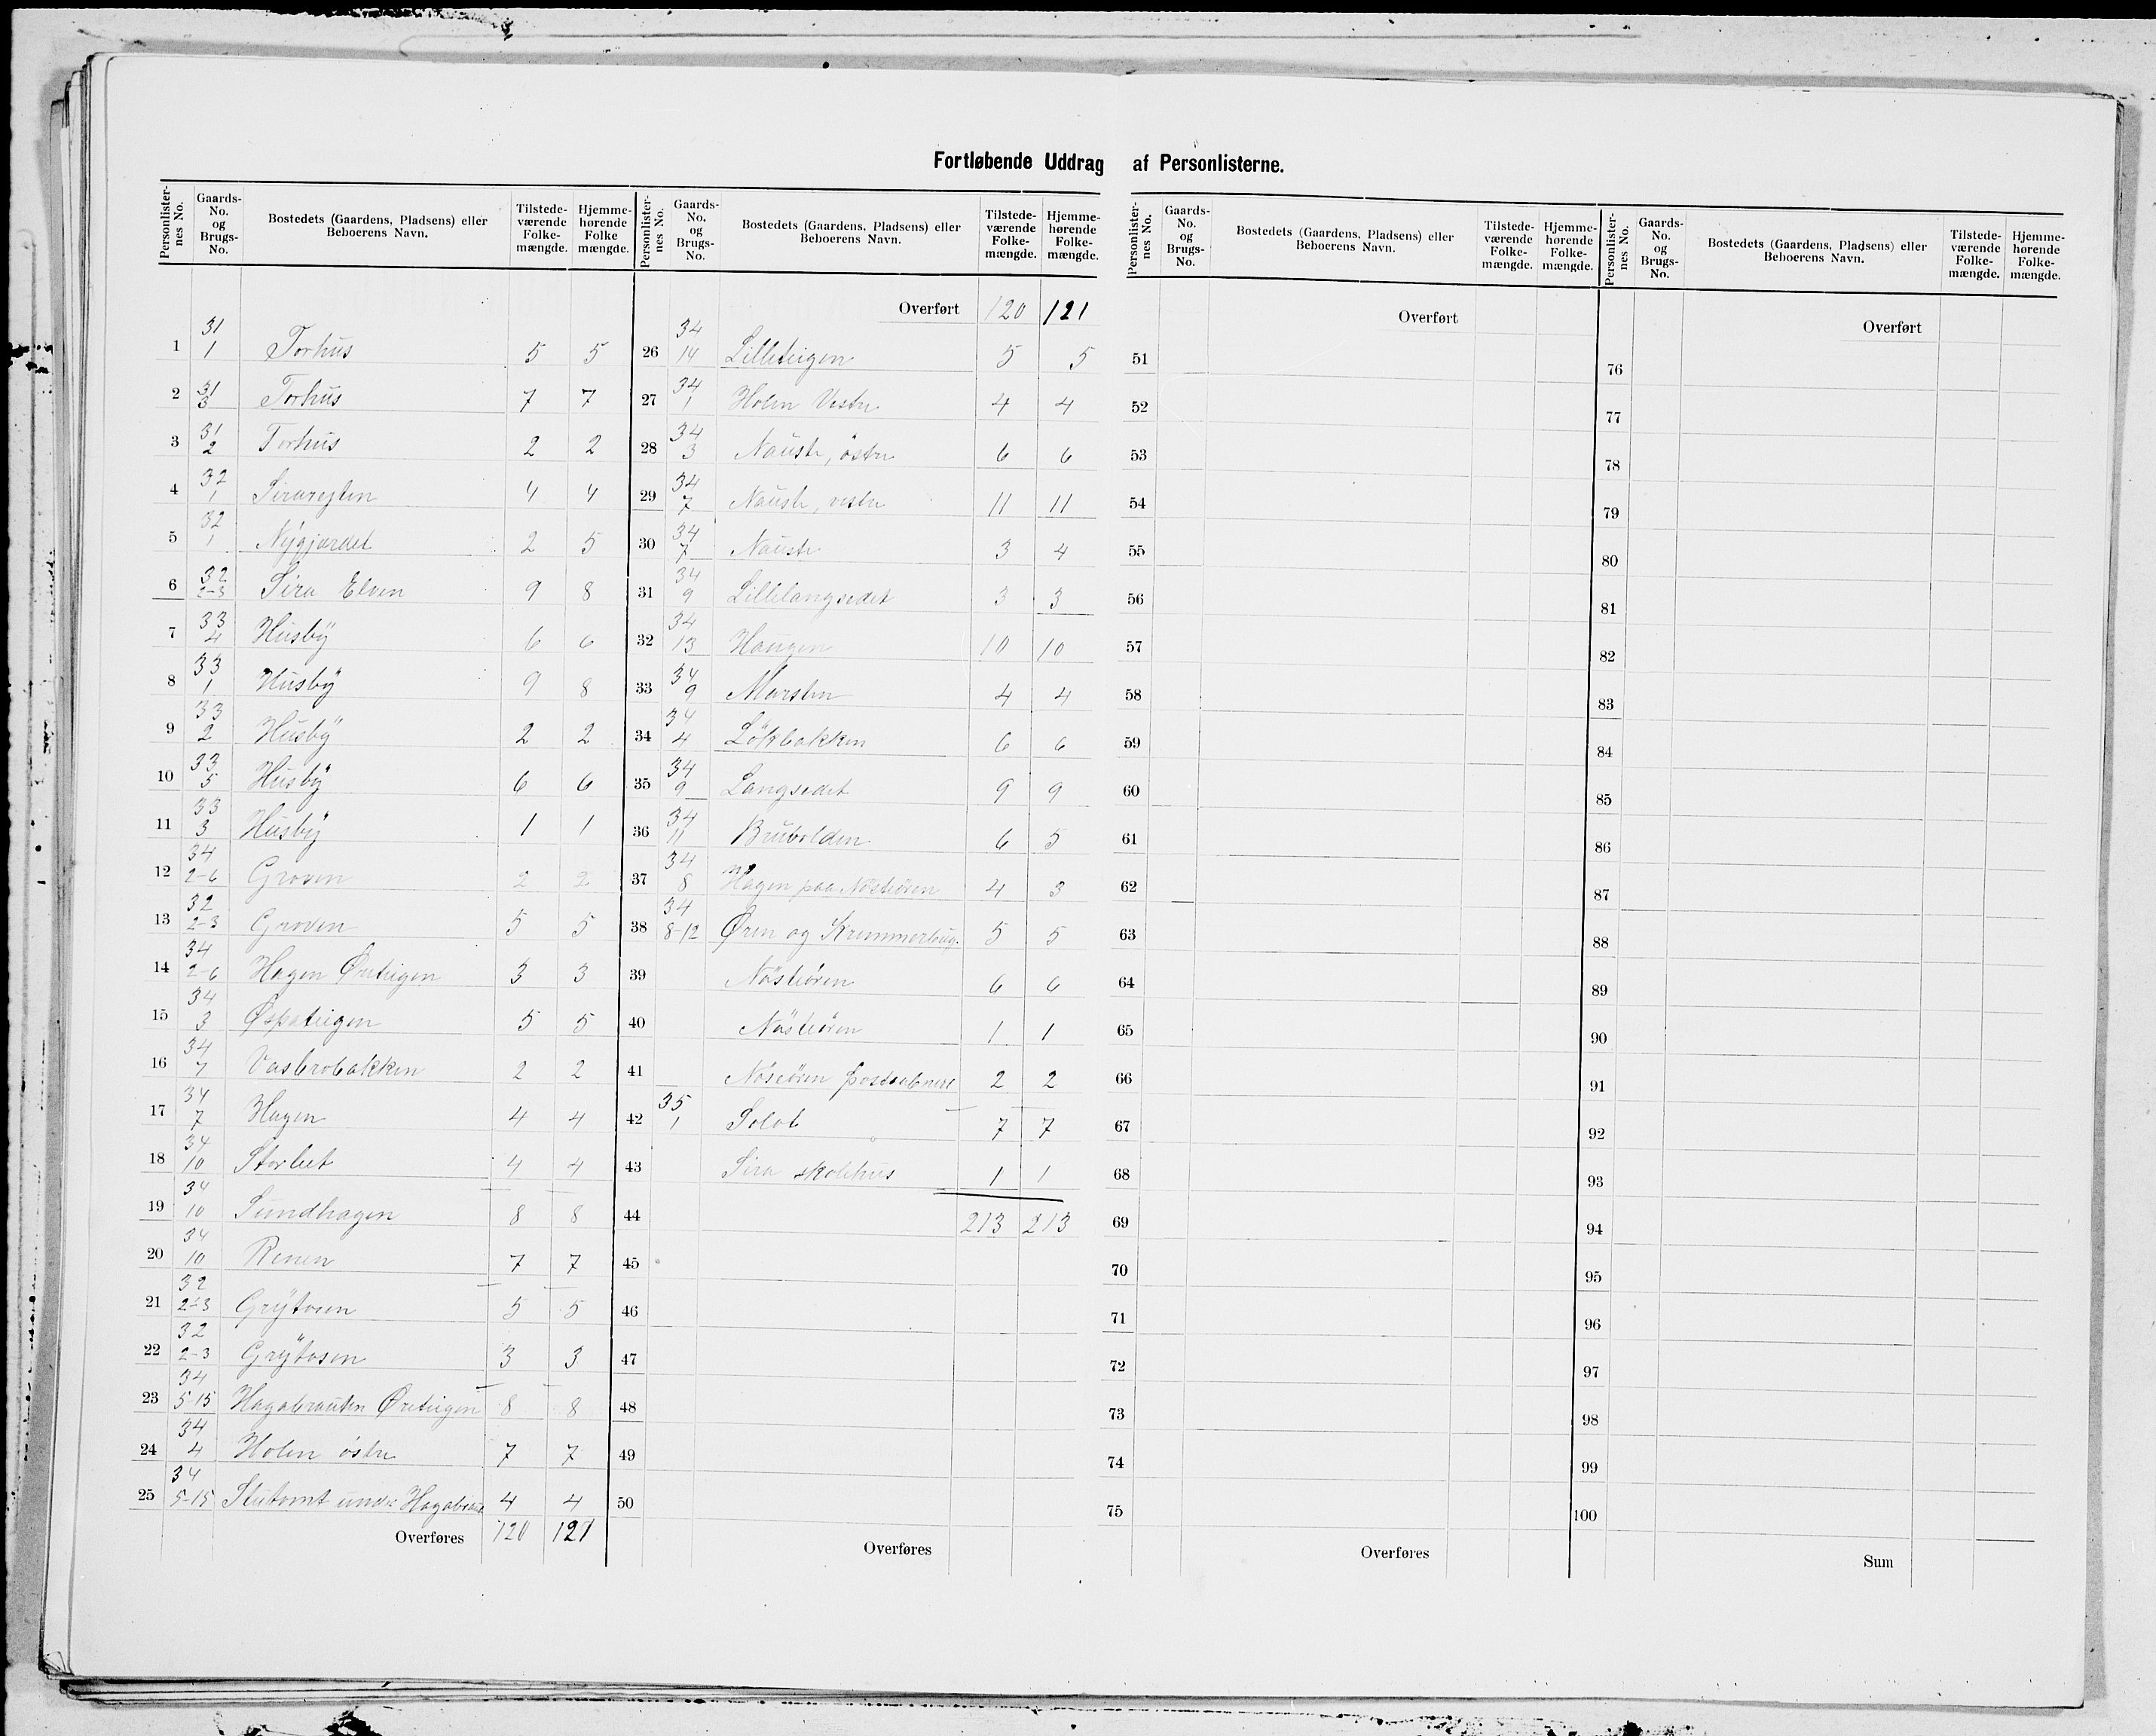 Fortløbende Uddrag af Personlisterne.
Personlisternes No. Gaards-No. og Brugs-No. Bostedets (Gaardens, Pladsens) eller Beboerens Navn. Tilstedeværende Folkemængde. Hjemmehørende Folke mængde.
1 31/1 Torhus 5 5
2 31/3 Torhus 7 7
3 31/2 Torhus 2 2
4 32/1 4 4
5 32/1 Nygjærdet 2 5
6 32/2-3 Sira Elven 9 8
7 33/4 Husby 6 6
8 33/1 Husby 9 8
9 33/2 Husby 2 2
10 33/5 Husby 6 6
11 33/3 Husby 1 1
12 34/2-6 Groven 2 2
13 32/2-3 Groven 5 5
14 34/2-6 Hagen Øreteigen 3 3
15 34/3 Øspateigen 5 5
16 34/7 Vasbrobakken 2 2
17 34/7 Hagen 4 4
18 34/10 4 4
19 34/10 Sundhagen 8 8
20 34/10 Renen 7 7
21 32/2-3 Grytosen 5 5
22 32/2-3 Grytosen 3 3
23 34/5-15 Hagabrauten Øreteigen 8 8
24 34/4 Holen østre 7 7
25 34/5-15 under 4 4
Overføres 120 121
Personlisternes No. Gaards-No. og Brugs-No. Bostedets (Gaardens, Pladsens) eller Beboerens Navn. Tilstedeværende Folkemængde. Hjemmehørende Folkemængde.
Overført 120 121
26 34/14 Lilleteigen 5 5
27 34/1 Holen Vestre 4 4
28 34/3 Nauste, østre 6 6
29 34/7 Nauste, vestre 11 11
30 34/7 Nauste 3 4
31 34/9 Lillelangsedet 3 3
32 34/13 Haugen 10 10
33 34/9 Marsten 4 4
34 34/4 Løkbakken 6 6
35 34/9 Langsedet 9 9
36 34/11 Brubolden 6 5
37 34/8 Hagen paa Nösteören 4 3
38 34/8-12 Øren og 5 5
39 Nösteören 6 6
40 Nösteören 1 1
41 Nösteören 2 2
42 35/1 7 7
43 Sira skolehus 1 1
44 213 213
45
46
47
48
49
50
Overføres
Personlisternes No. Gaards-No. og Brugs-No. Bostedets (Gaardens, Pladsens) eller Beboerens Navn. Tilstedeværende Folkemængde. Hjemmehørende Folkemængde.
Overført
51
52
53
54
55
56
57
58
59
60
61
62
63
64
65
66
67
68
69
70
71
72
73
74
75
Overføres
Personlisternes No. Gaards-No. og Brugs-No. Bostedets (Gaardens, Pladsens) eller Beboerens Navn. Tilstedeværende Folkemængde. Hjemmehørende Folkemængde.
Overført
76
77
78
79
80
81
82
83
84
85
86
87
88
89
90
91
92
93
94
95
96
97
98
99
100
Sum